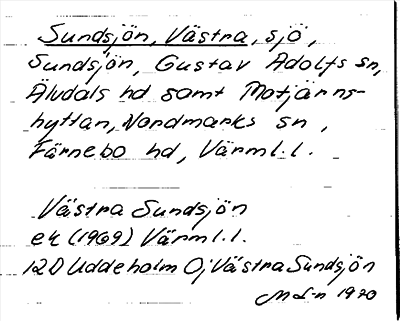 Sundsjön, Västra, sjö,
Sundsjön, Gustav Adolfs sn,
Älvdals hd samt Motjärns-
hyttan, Nordmarks sn,
Färnebo hd, Värml.l.
Västra Sundsjön
ek (1969) Värml.l.
12D Uddeholm Oj Västra Sundsjön
1970